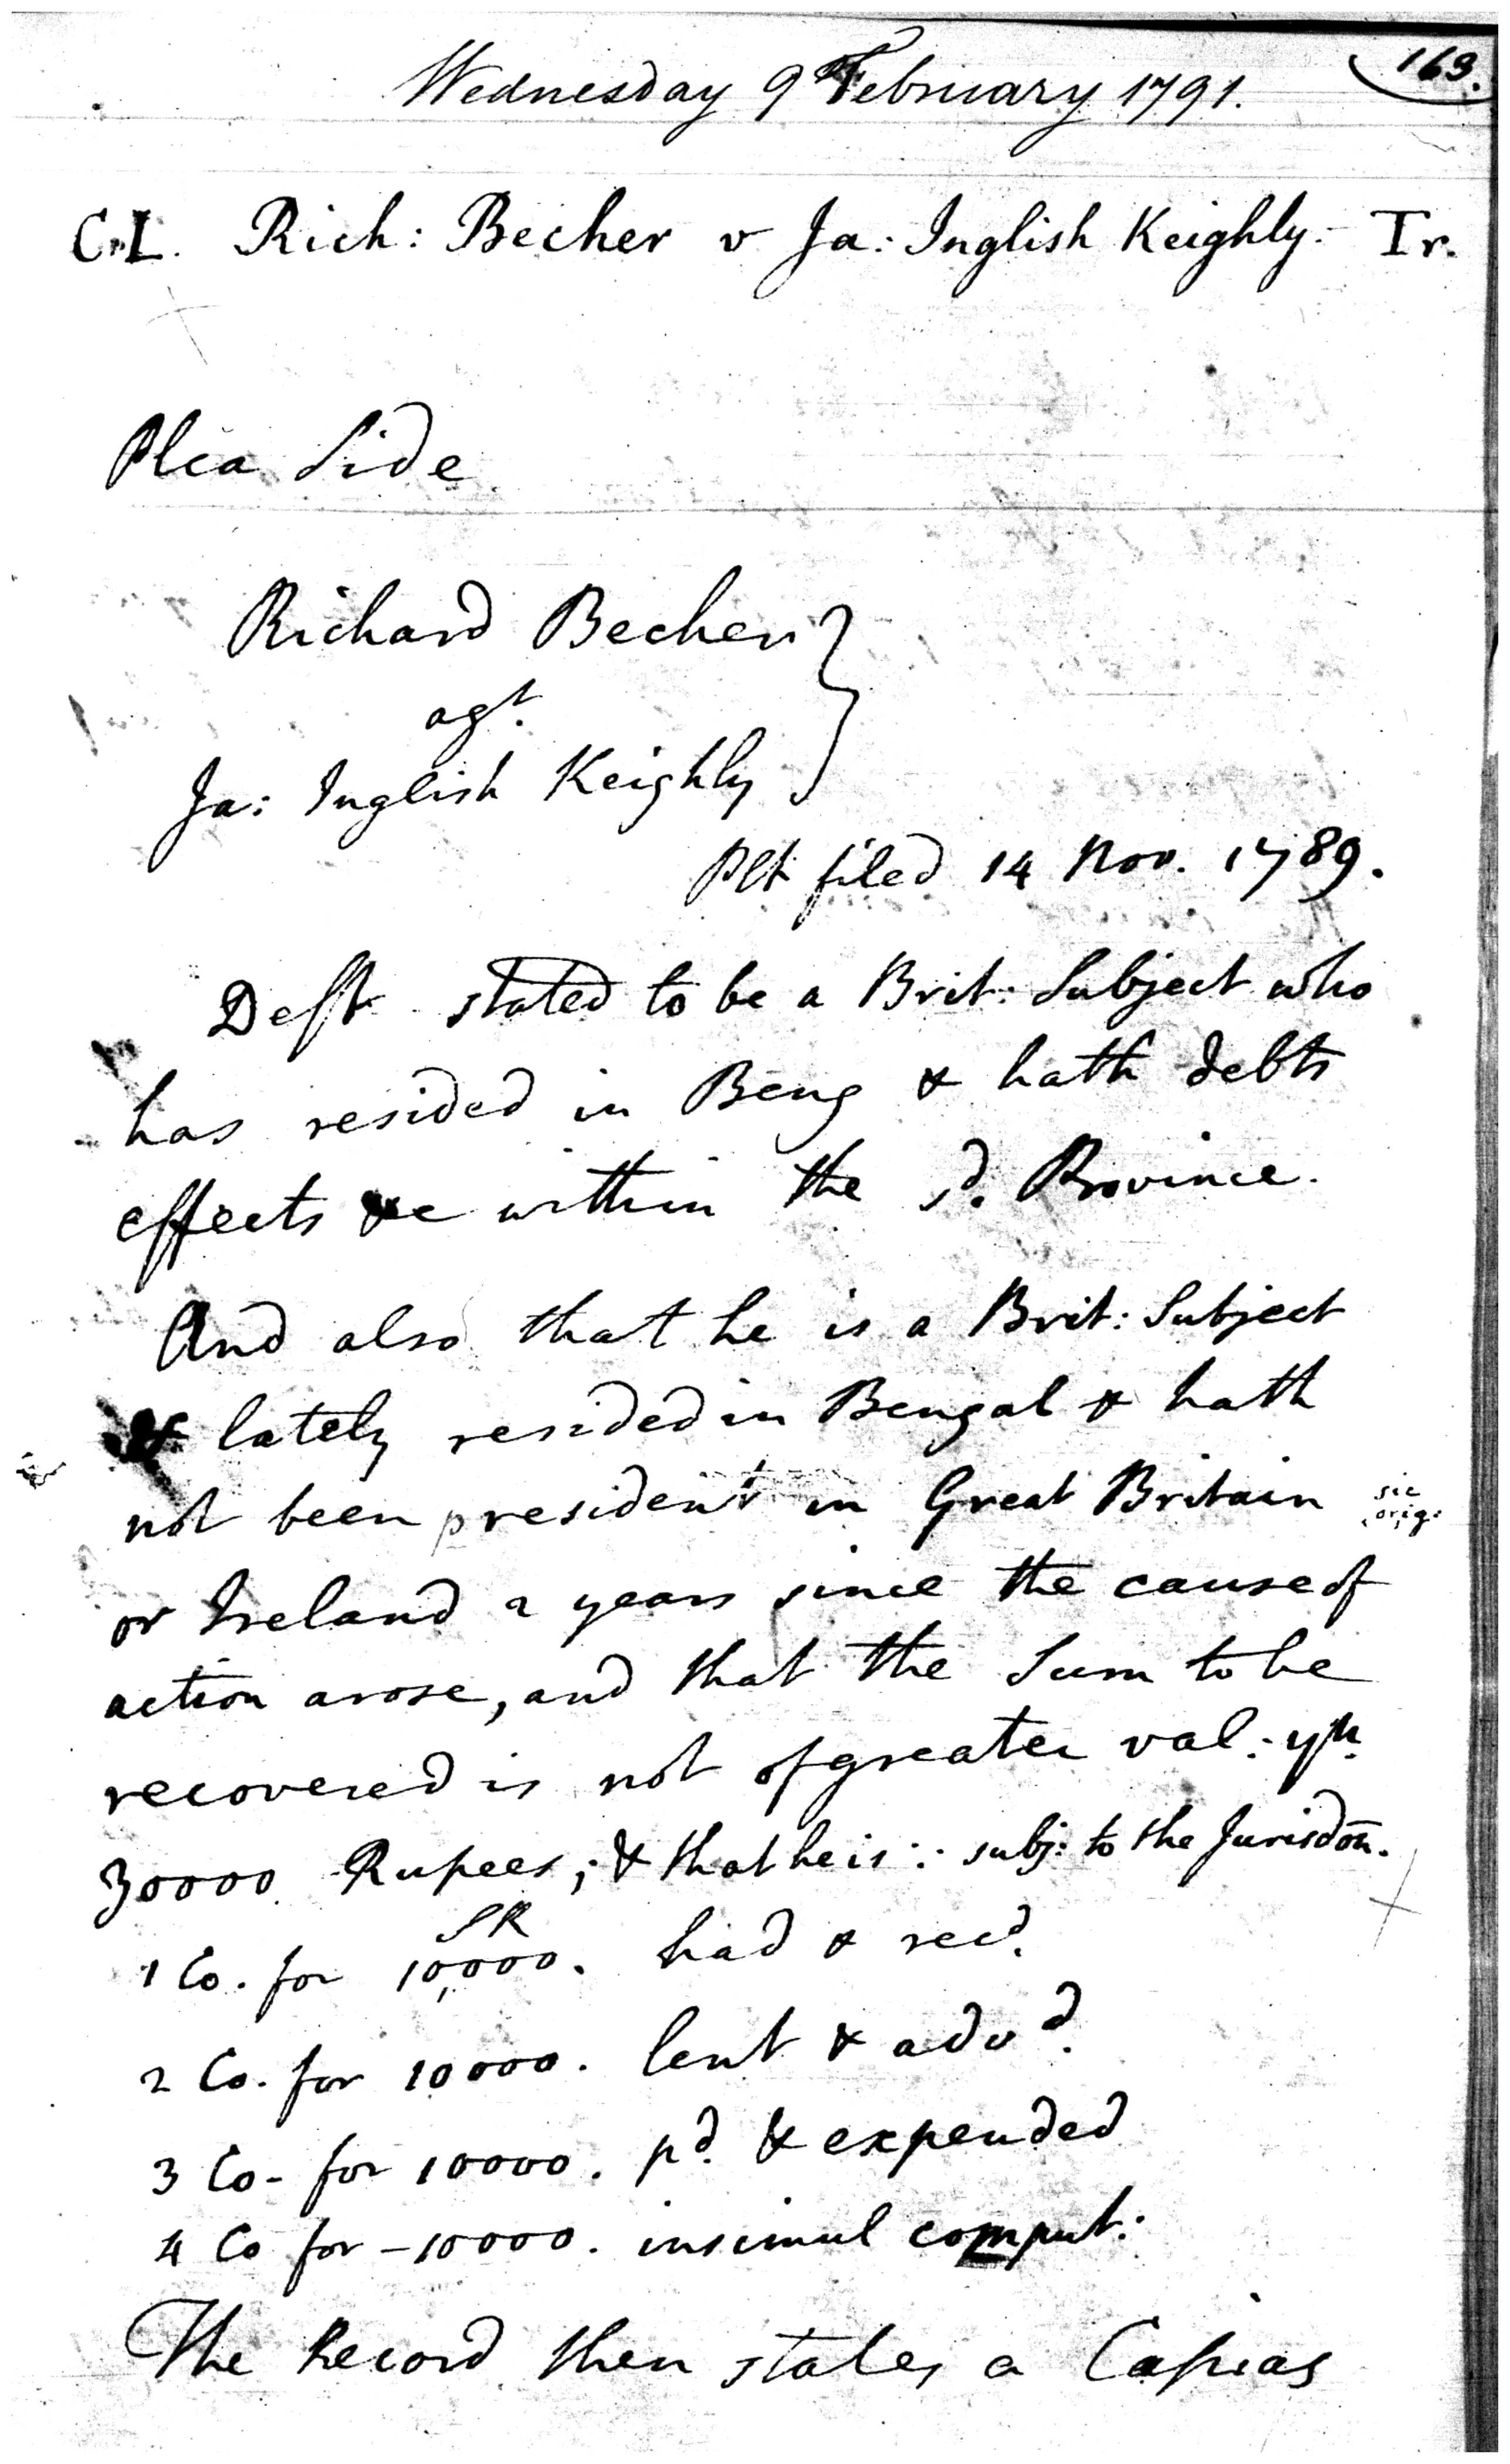 163.
Wednesday 9 February 1791.
C.L. Rich: Becher v Ja: Inglish Keighly:- Tr.
Plea Side
Richard Becher
agt.
Ja: Inglish Keighly
Plt filed 14 Nov. 1789.
Deft. stated to be a Brit: Subject who
has resided in Beng & hath debts
effects &c within the sd. Province.
And also that he is a Brit: Subject
& lately resided in Bengal & hath
not been president in Great Britain sic orig:
or Ireland 2 years since the cause of
action arose, and that the Sum to be
recovered is not of greater val: yn.
30000 Rupees; & that he is ∴ subj: to the Jurisdon.
SR
1 Co. for 10,000. had & recd.
2 Co. for 10000. lent & advd.
3 Co- for 10000. pd. & expended
4 Co for - 10000. insimul comput:
The Record then states a Capias